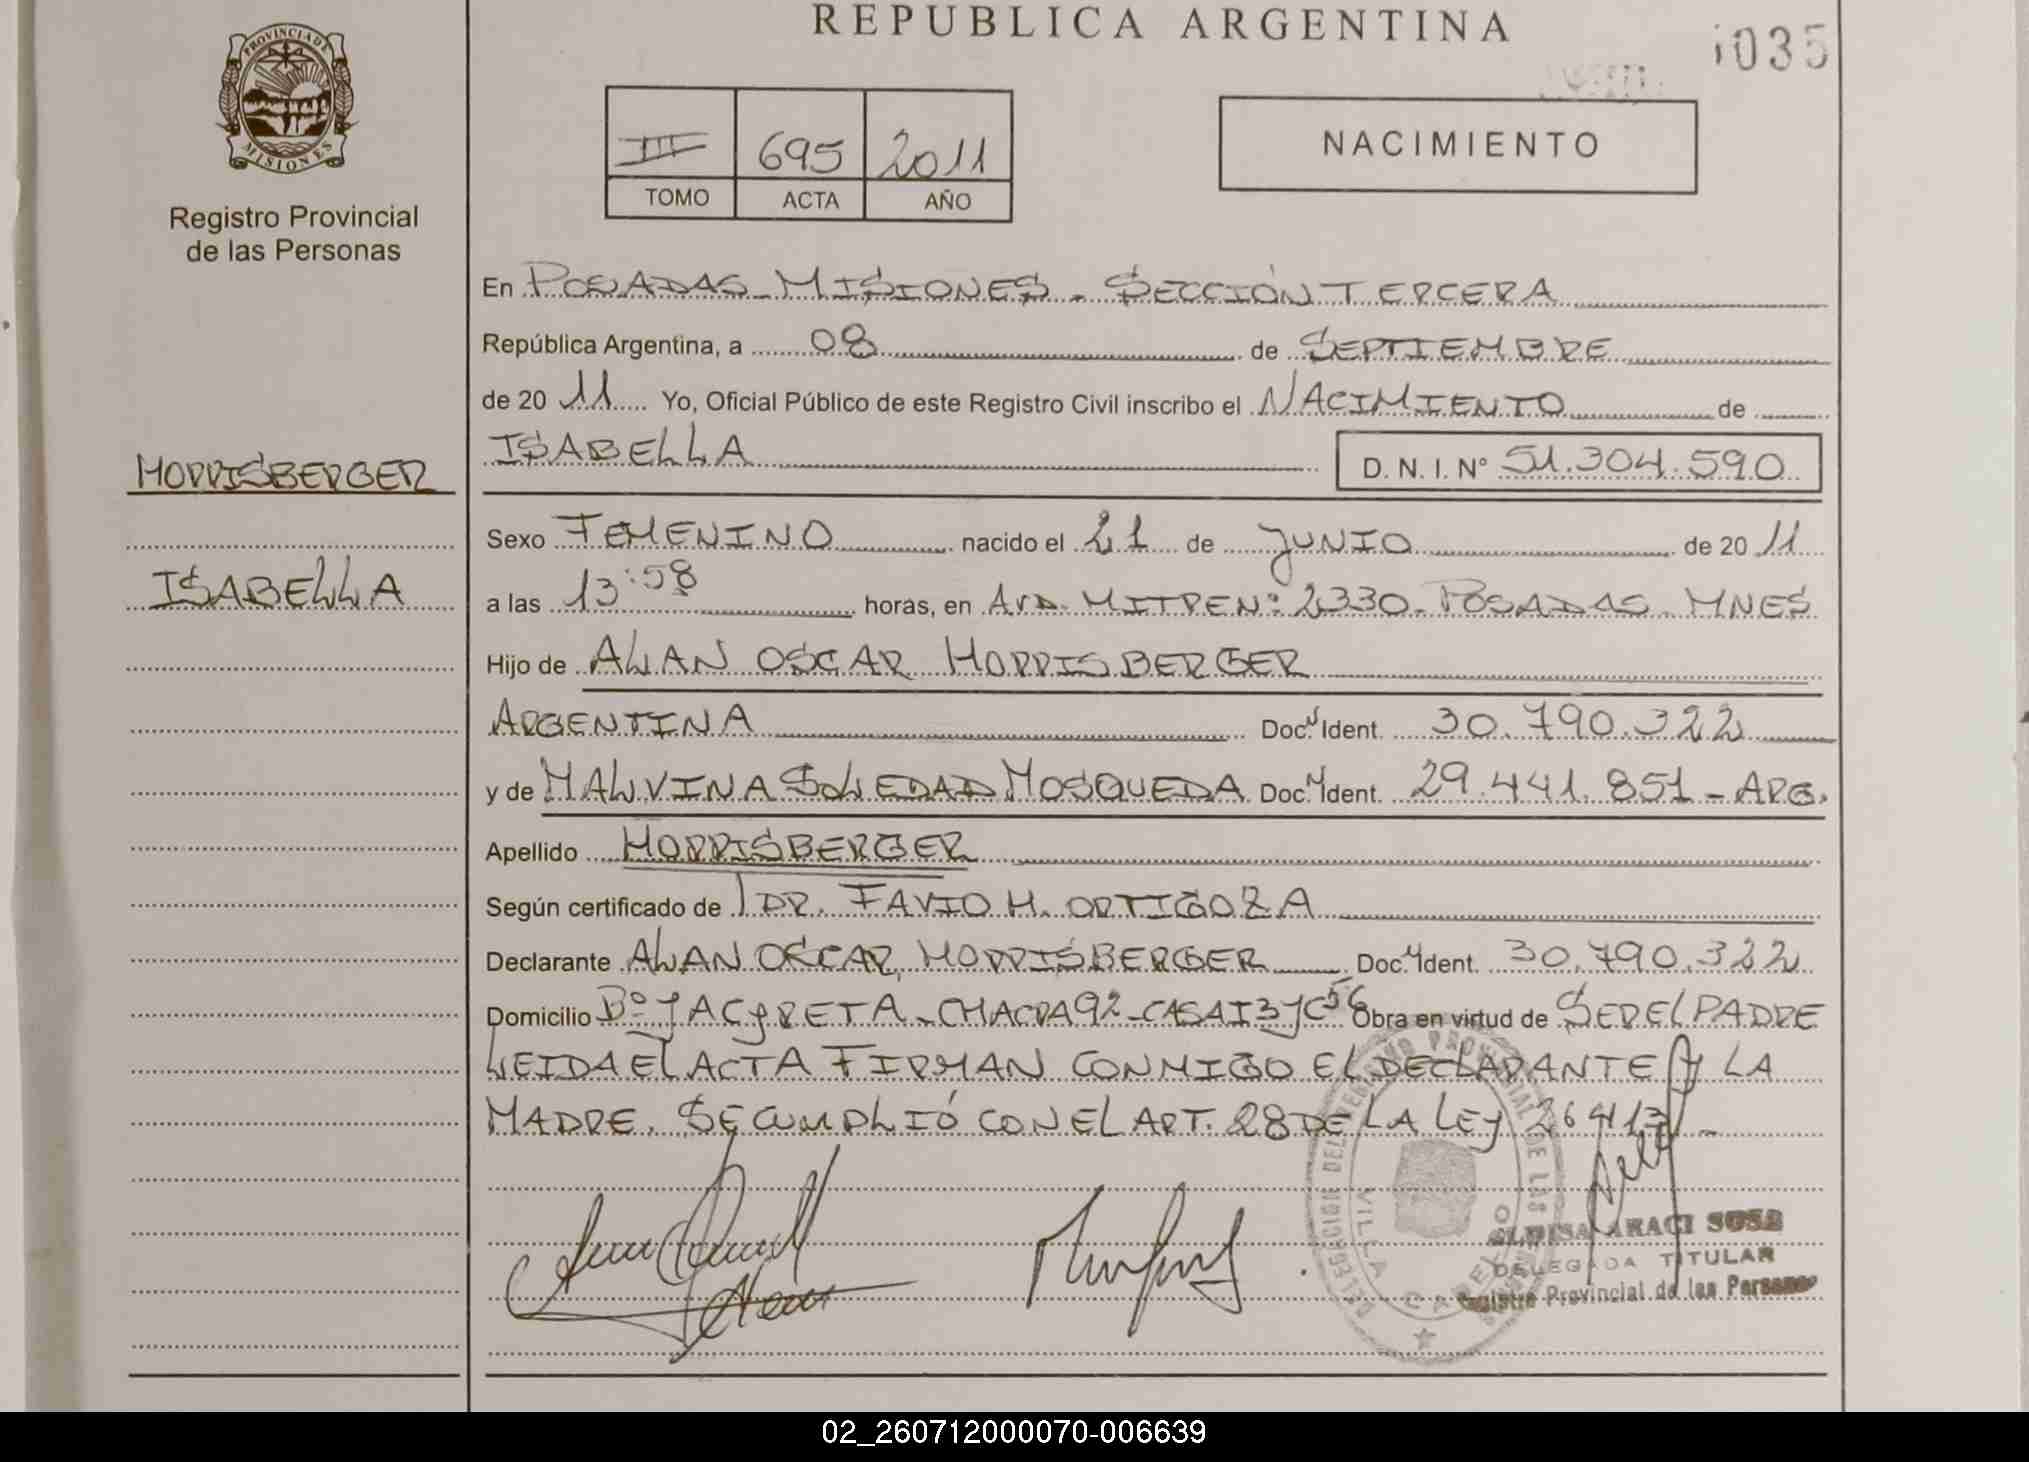 PROVINCIA DE
MISIONES
Registro Provincial
de las Personas
MORRISBERGER
ISABELLA
REPUBLICA ARGENTINA
035
III 695 2011
TOMO ACTA AÑO
NACIMIENTO
En POSADAS - MISIONES - SECCIÓN TERCERA
República Argentina, a 08 de SEPTIEMBRE
de 20 11 Yo, Oficial Público de este Registro Civil inscribo el NACIMIENTO de
ISABELLA D. N. I. Nº 51.304.590
Sexo FEMENINO nacido el 21 de JUNIO de 20 11
a las 13:58 horas, en AVD. MITRE Nº 2330 - POSADAS - MNES
Hijo de ALAN OSCAR MORRISBERGER
ARGENTINA Doc. Ident. 30.790.322
y de MALVINA SOLEDAD MOSQUEDA Doc. Ident. 29.441.851 - ARG.
Apellido MORRISBERGER
Según certificado de DR. FAVIO H. ORTIGOZA
Declarante ALAN OSCAR MORRISBERGER Doc. Ident. 30.790.322
Domicilio Bº YACYRETA - CHACRA 92 - CASA Obra en virtud de SER EL PADRE
LEIDA EL ACTA FIRMAN CONMIGO EL DECLARANTE Y LA
MADRE. SE CUMPLIÓ CON EL ART. 28 DE LA LEY 26413 -
VILLA CABELLO
ARACI SOSA
DELEGADA TITULAR
Registro Provincial de las Personas
02_260712000070-006639